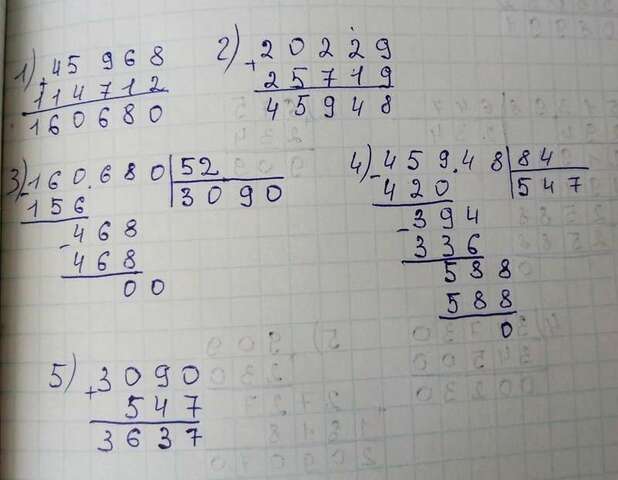 1) + 45 968
114712
160680
2) + 20229
25719
45948
3) - 160.680 | 52
156 | 3090
- 468
468
00
4) - 459.48 | 84
420 | 547
- 394
336
588
588
0
5) + 3090
547
3637